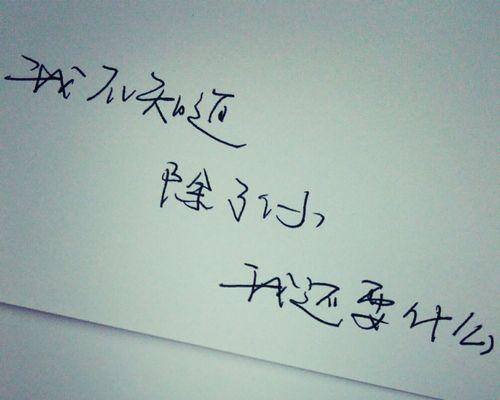 我不知道
除了你,
我还要什么